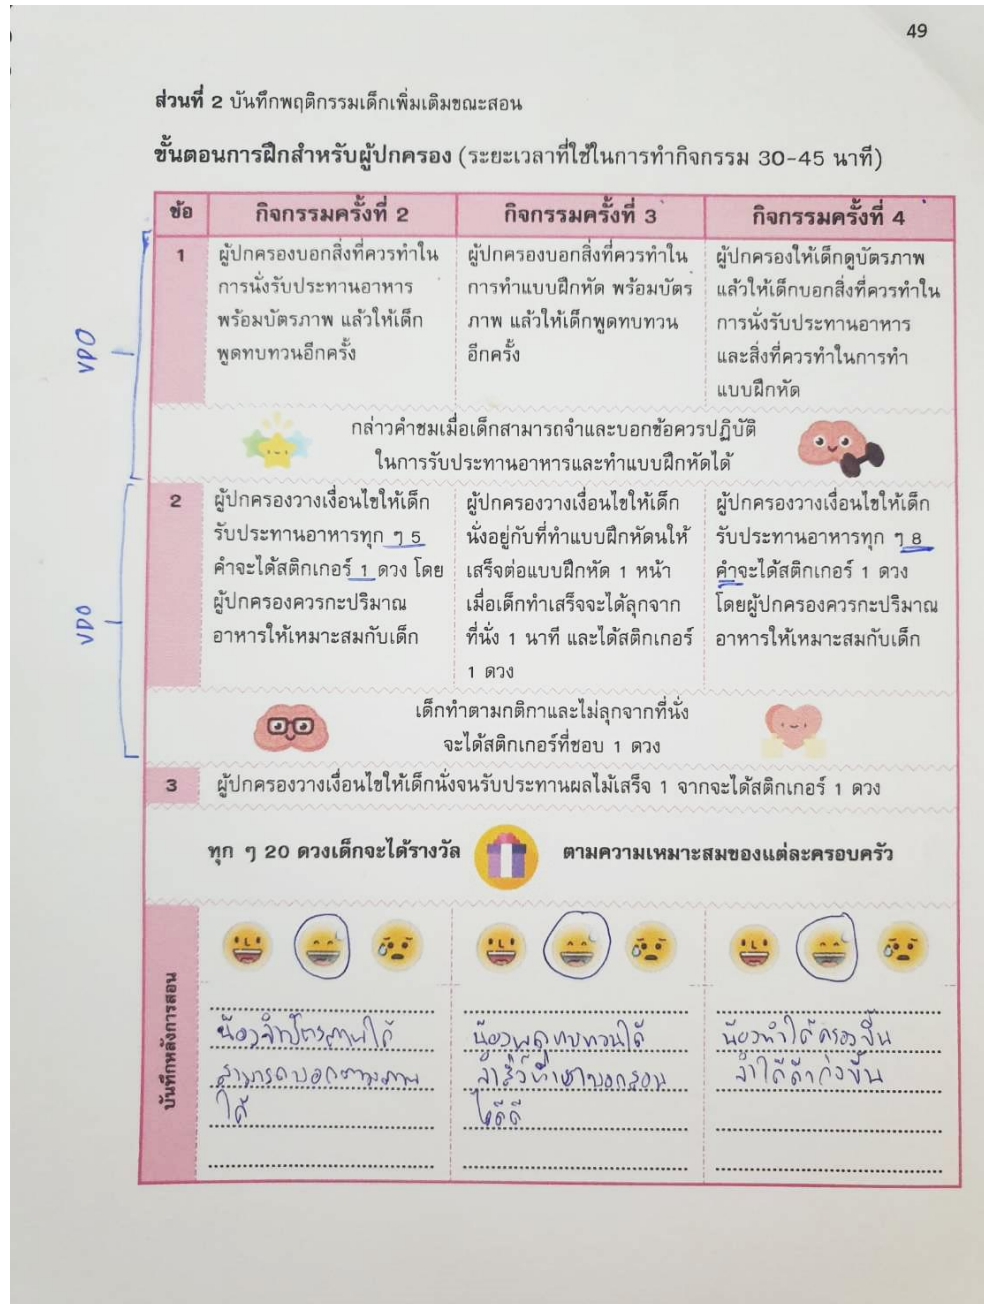 49
ส่วนที่ 2 บันทึกพฤติกรรมเด็กเพิ่มเติมขณะสอน
ขั้นตอนการฝึกสำหรับผู้ปกครอง (ระยะเวลาที่ใช้ในการทำกิจกรรม 30-45 นาที)
ข้อ กิจกรรมครั้งที่ 2 กิจกรรมครั้งที่ 3 กิจกรรมครั้งที่ 4
VDO
1
ผู้ปกครองบอกสิ่งที่ควรทำใน
การนั่งรับประทานอาหาร
พร้อมบัตรภาพ แล้วให้เด็ก
พูดทบทวนอีกครั้ง
ผู้ปกครองบอกสิ่งที่ควรทำใน
การทำแบบฝึกหัด พร้อมบัตร
ภาพ แล้วให้เด็กพูดทบทวน
อีกครั้ง
ผู้ปกครองให้เด็กดูบัตรภาพ
แล้วให้เด็กบอกสิ่งที่ควรทำใน
การนั่งรับประทานอาหาร
และสิ่งที่ควรทำในการทำ
แบบฝึกหัด
กล่าวคำชมเมื่อเด็กสามารถจำและบอกข้อควรปฏิบัติ
ในการรับประทานอาหารและทำแบบฝึกหัดได้
VDO
2
ผู้ปกครองวางเงื่อนไขให้เด็ก
รับประทานอาหารทุก ๆ 5
คำจะได้สติกเกอร์ 1 ดวง โดย
ผู้ปกครองควรกะปริมาณ
อาหารให้เหมาะสมกับเด็ก
ผู้ปกครองวางเงื่อนไขให้เด็ก
นั่งอยู่กับที่ทำแบบฝึกหัดนให้
เสร็จต่อแบบฝึกหัด 1 หน้า
เมื่อเด็กทำเสร็จจะได้ลุกจาก
ที่นั่ง 1 นาที และได้สติกเกอร์
1 ดวง
ผู้ปกครองวางเงื่อนไขให้เด็ก
รับประทานอาหารทุก ๆ 8
คำจะได้สติกเกอร์ 1 ดวง
โดยผู้ปกครองควรกะปริมาณ
อาหารให้เหมาะสมกับเด็ก
เด็กทำตามกติกาและไม่ลุกจากที่นั่ง
จะได้สติกเกอร์ที่ชอบ 1 ดวง
3 ผู้ปกครองวางเงื่อนไขให้เด็กนั่งจนรับประทานผลไม้เสร็จ 1 จากจะได้สติกเกอร์ 1 ดวง
ทุก ๆ 20 ดวงเด็กจะได้รางวัล ตามความเหมาะสมของแต่ละครอบครัว
บันทึกหลังการสอน
น้อง
สามารถบอกตามภาพ
ได้
น้องพูดทบทวนได้
จำสิ่งที่
ได้ดี
น้องทำได้
จำได้